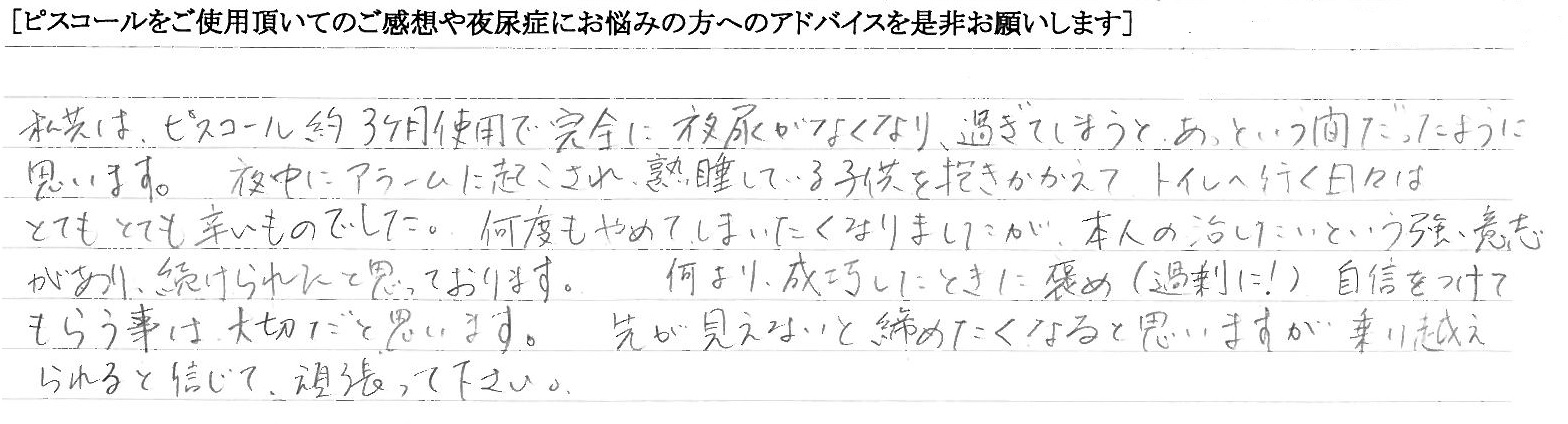 [ピスコールをご使用頂いてのご感想や夜尿症にお悩みの方へのアドバイスを是非お願いします]
私共は、ピスコール約3ヶ月使用で完全に夜尿がなくなり、過ぎてしまうと、あっという間だったように
思います。 夜中にアラームに起こされ、熟睡している子供を抱きかかえて トイレへ行く日々は
とてもとても辛いものでした。 何度もやめてしまいたくなりましたが、本人の治したいという強い意志
があり、続けられたと思っております。 何より、成功したときに褒め(過剰に!) 自信をつけて
もらう事は大切だと思います。 先が見えないと締めたくなると思いますが 乗り越え
られると信じて、頑張って下さい。